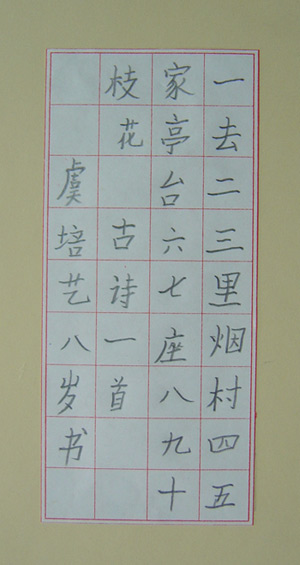 一去二三里烟村四五
家亭台六七座八九十
枝花 古诗一首
虞培艺八岁书